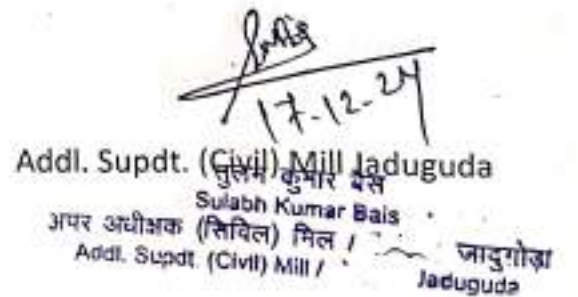 17-12-24
Addl. Supdt. (Civil) Mill Jaduguda
कुमार बैस
Sulabh Kumar Bais
अपर अधीक्षक (सिविल) मिल / जादुगोड़ा
Addl. Supdt. (Civil) Mill / Jaduguda